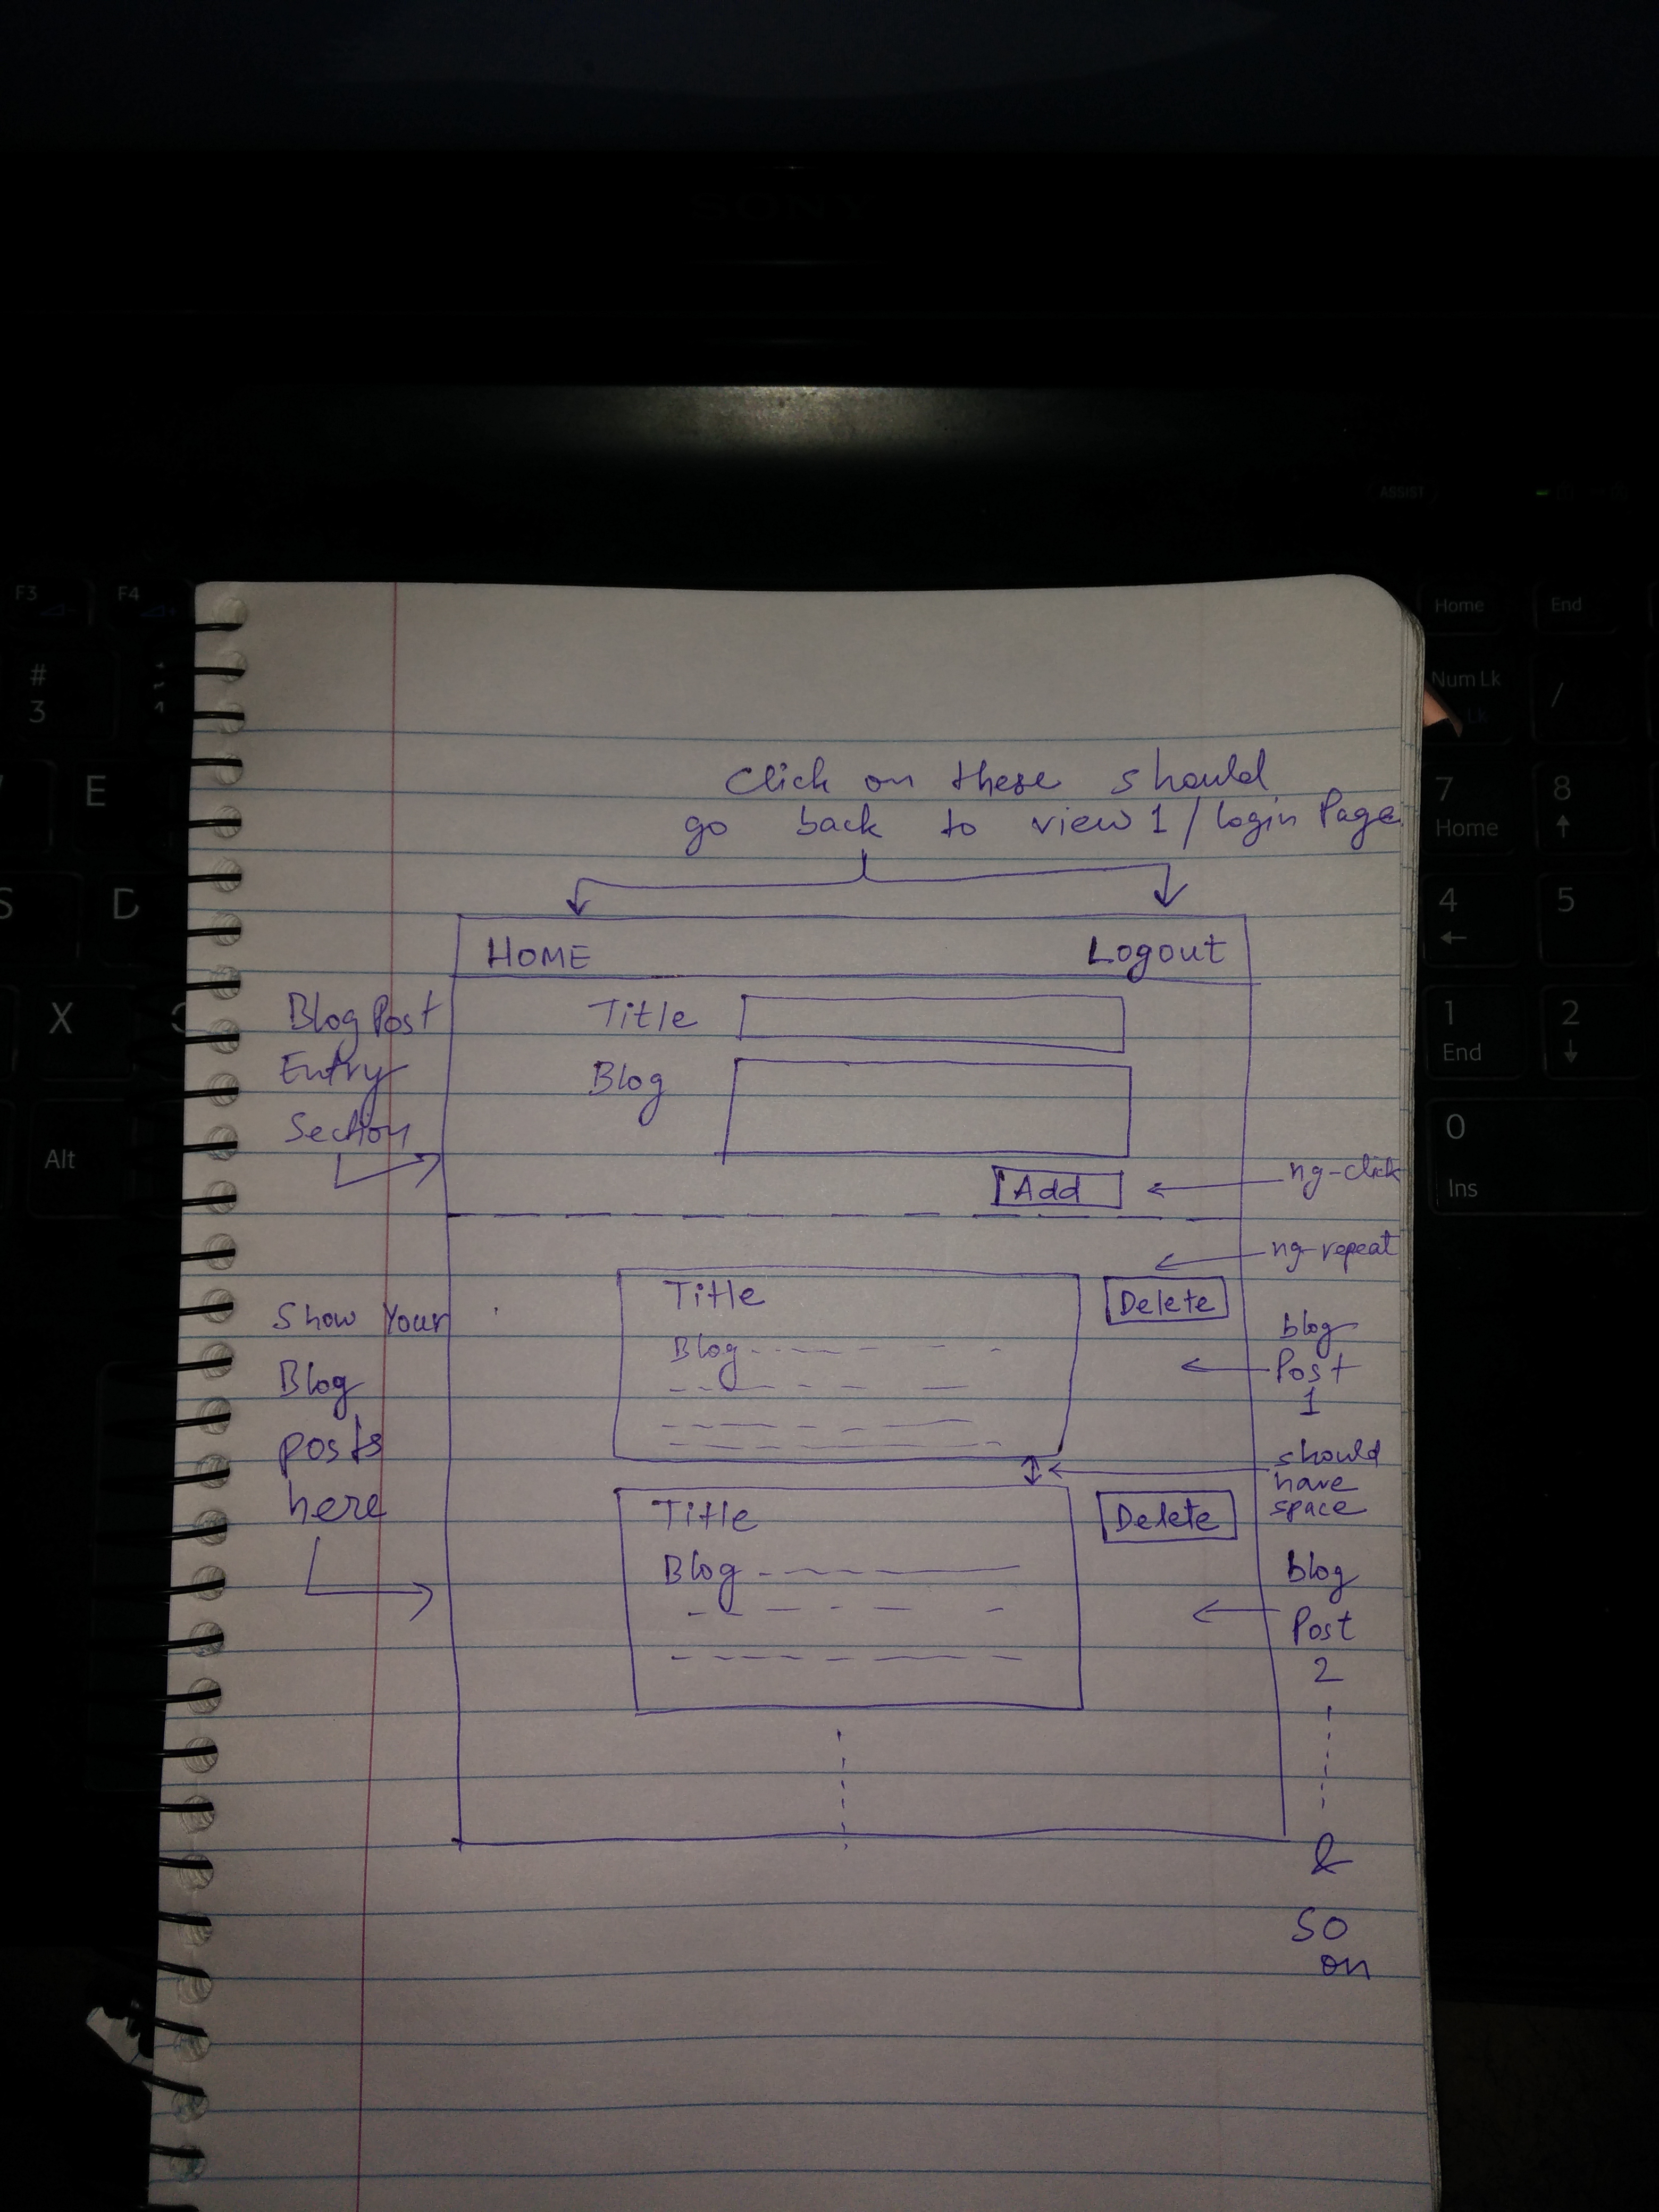 SONY
ASSIST
F3
F4
#
3
E
S
D
X
Alt
Home
End
Num Lk
Lk
/
7
Home
8
4
5
1
End
2
0
Ins
Click on these should
go back to view 1 / login Page
HOME
Logout
Blog Post
Entry
Section
Title
Blog
Add
ng-click
ng-repeat
Show Your
Blog
posts
here
Title
Blog
Delete
blog
Post
1
should
have
space
Title
Blog
Delete
blog
Post
2
&
so
on